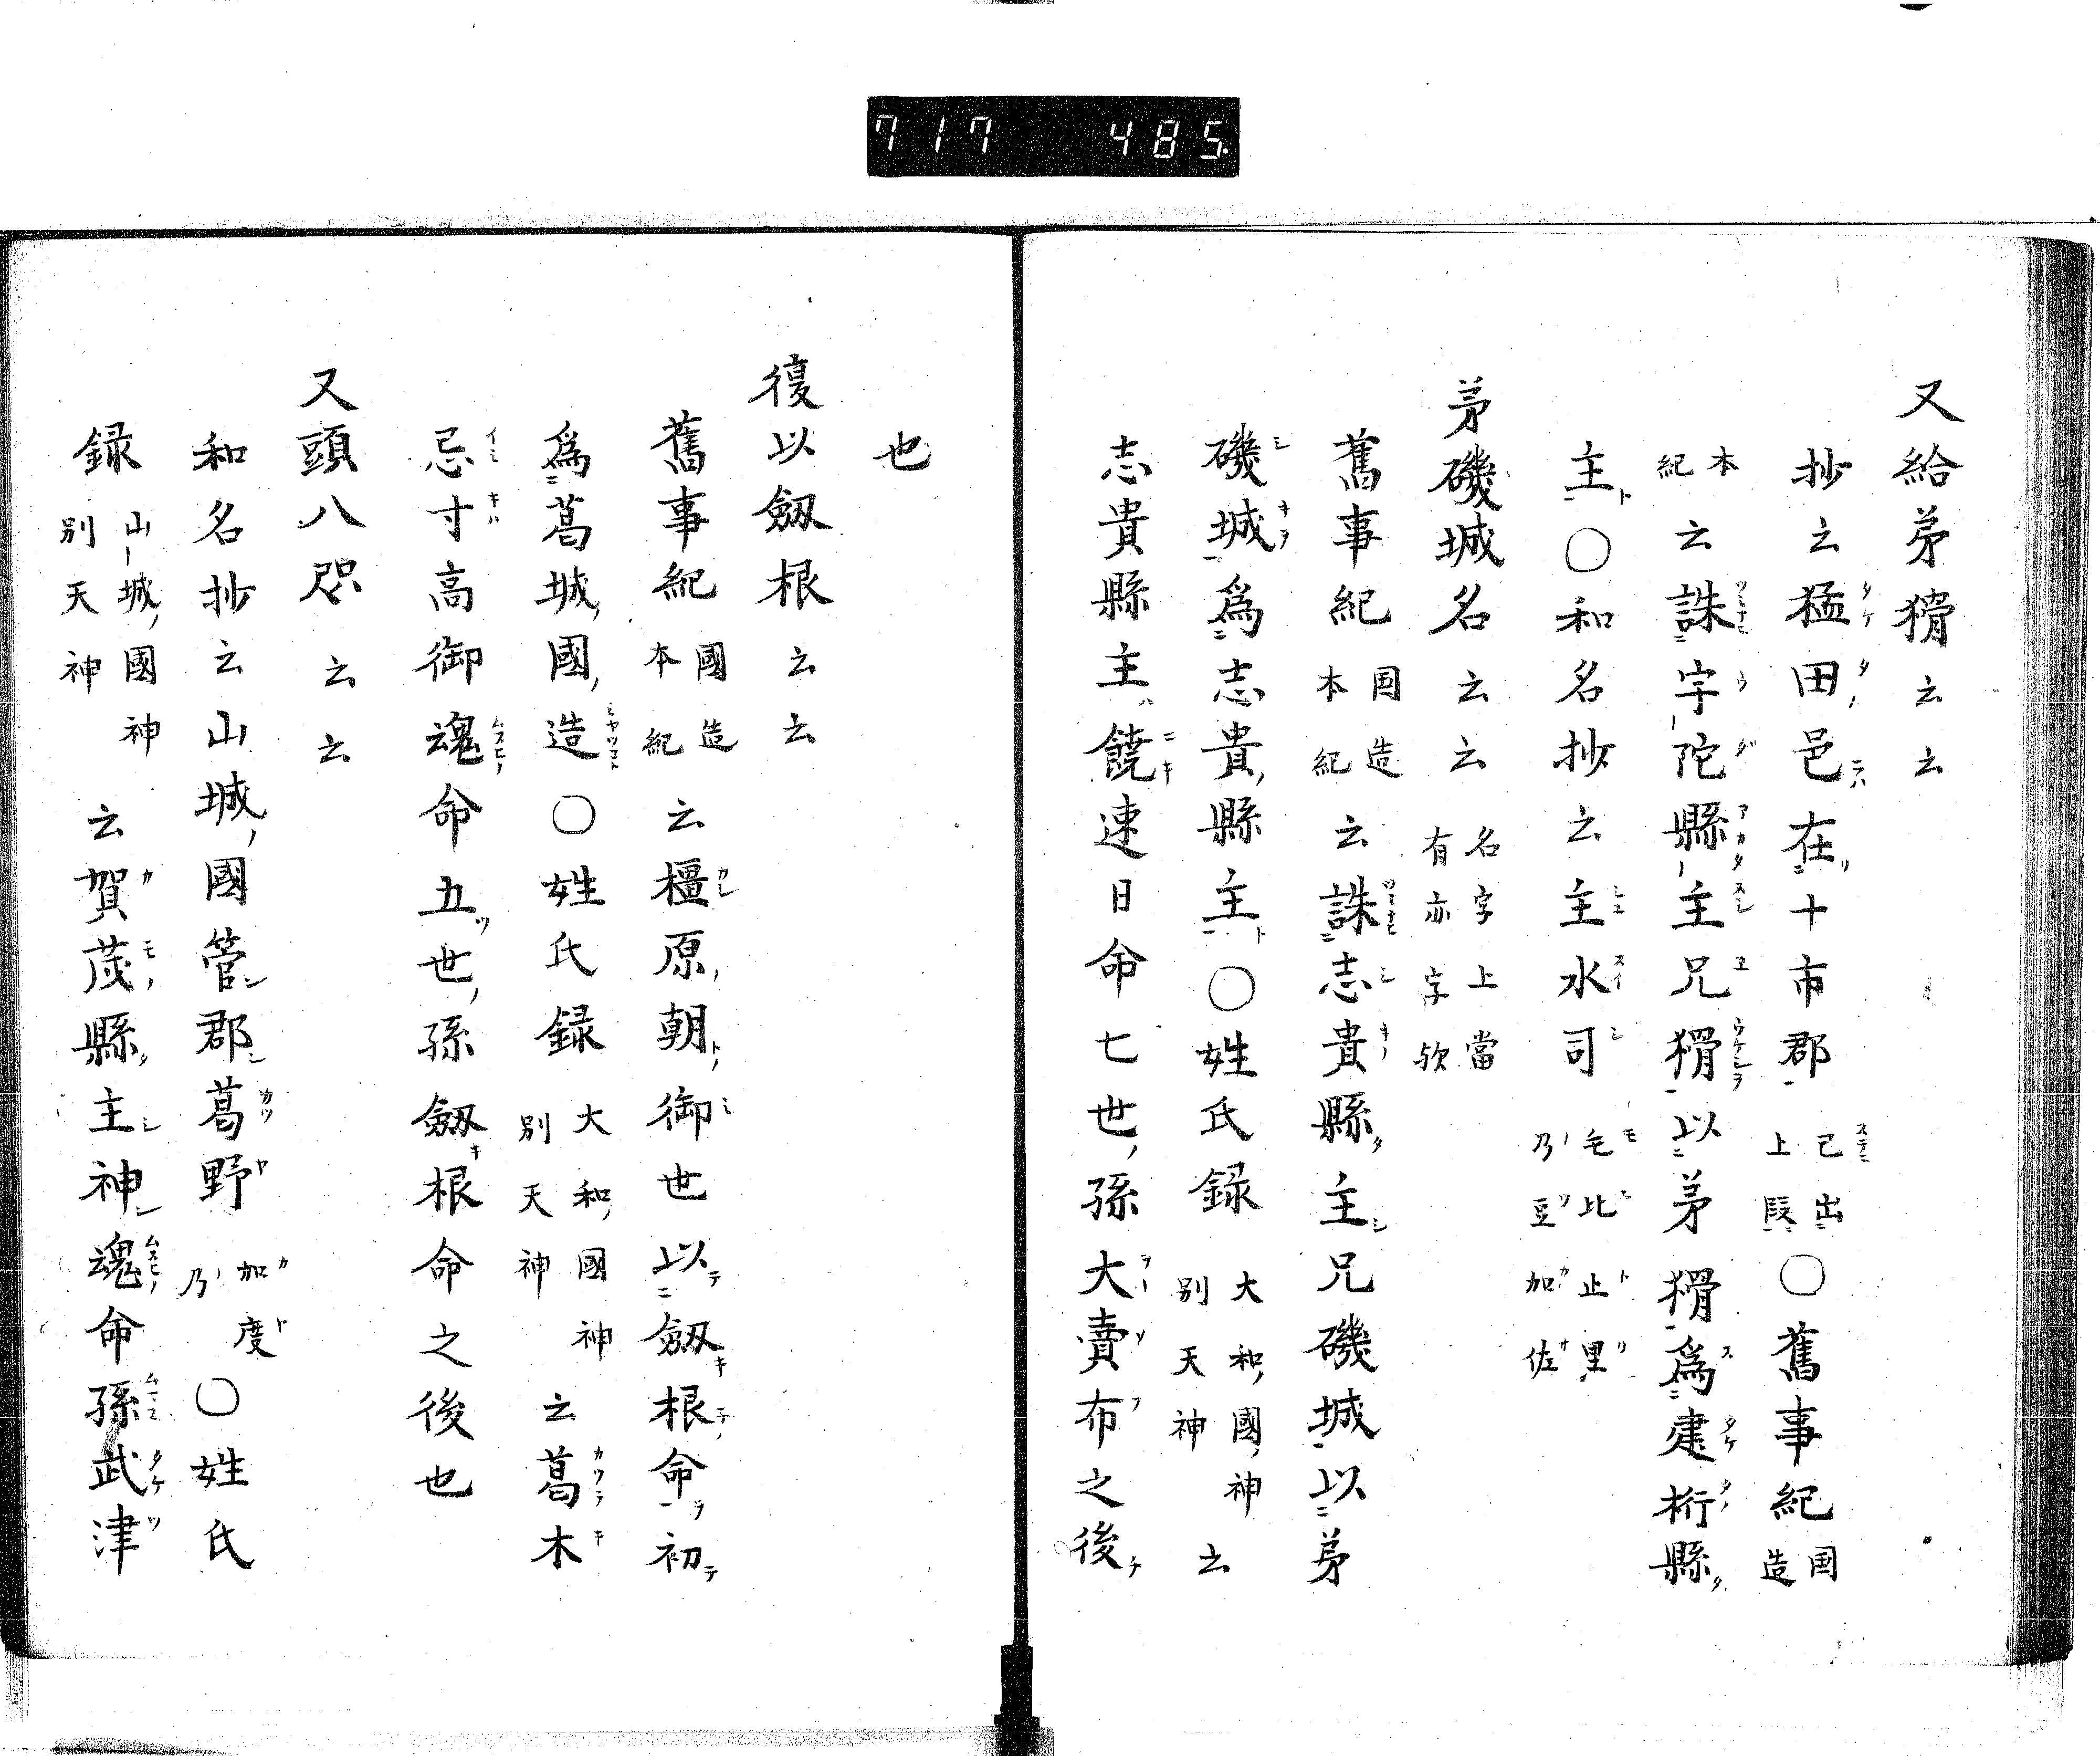 717 485
又給弟猾云云
抄云猛田邑在十市郡 已出上段 ○舊事紀 国造
本紀 云誅宇陀縣主兄猾以弟猾爲建桁縣
主○和名抄云主水司 毛比止里乃豆加佐
弟磯城名云云 名字上當有亦字欤
舊事紀 国造本紀 云誅志貴縣主兄磯城以弟
磯城爲志貴縣主○姓氏録 大和國神別天神 云
志貴縣主饒速日命七世孫大賣布之後
也
復以剱根云云
舊事紀 國造本紀 云橿原朝御世以剱根命初
爲葛城國造○姓氏録 大和國神別天神 云葛木
忌寸高御魂命五世孫剱根命之後也
又頭八咫云云
和名抄云山城國管郡葛野 加度乃 ○姓氏
録 山城國神別天神 云賀茂縣主神魂命孫武津